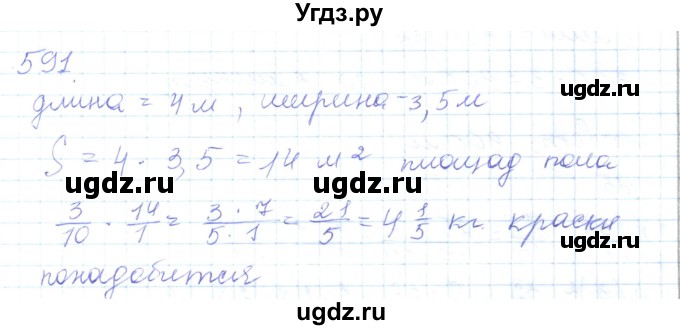 Угдз.ру
591.
длина = 4 м, ширина - 3,5 м
S = 4 · 3,5 = 14 м² площад пола
3/10 · 14/1 = 3 · 7/5 · 1 = 21/5 = 4 1/5 кг. краски
понадобится
ugdz.ru
ugdz.ru
ugdz.ru
ugdz.ru
ugdz.ru
ugdz.ru